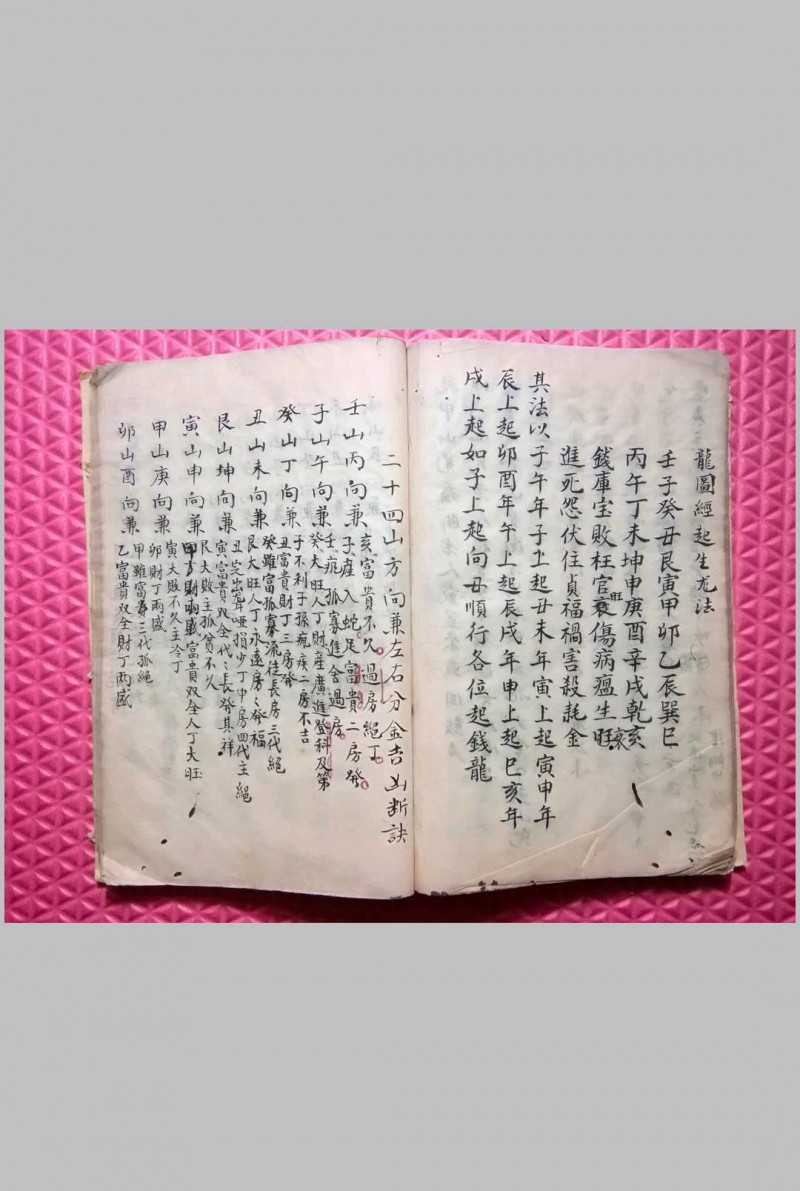 龍圖經起生尤法
壬子癸丑艮寅甲卯乙辰巽巳
丙午丁未坤申庚酉辛戌乾亥
錢庫宝敗枉官衰旺傷病瘟生旺衰
進死怨伏住貞福禍害殺耗金
其法以子午年子上起丑未年寅上起寅申年
辰上起卯酉年午上起辰戌年申上起巳亥年
戌上起如子上起向丑順行各位起錢龍
二十四山方向兼左右分金吉凶断訣
壬山丙向兼
亥富貴不久過房絕丁
子産入蛇足富貴二房發
子山午向兼
壬疤孤寡進舍過房
癸大旺人丁財産廣進登科及第
癸山丁向兼
子不利子孫瘋疾二房不吉
丑富貴財丁三房發
丑山未向兼
癸雖富孤寡流徒長房三代絕
艮大旺人丁永遠房々發福
艮山坤向兼
丑出聾啞損少丁中房四代主絕
寅富貴双全代々長發其祥
寅山申向兼
艮大敗主孤貧不久
甲丁財兩盛富貴双全人丁大旺
甲山庚向兼
寅大敗不久主冷丁
卯財丁兩盛
卯山酉向兼
甲雖富貴三代孤絕
乙富貴双全財丁兩盛